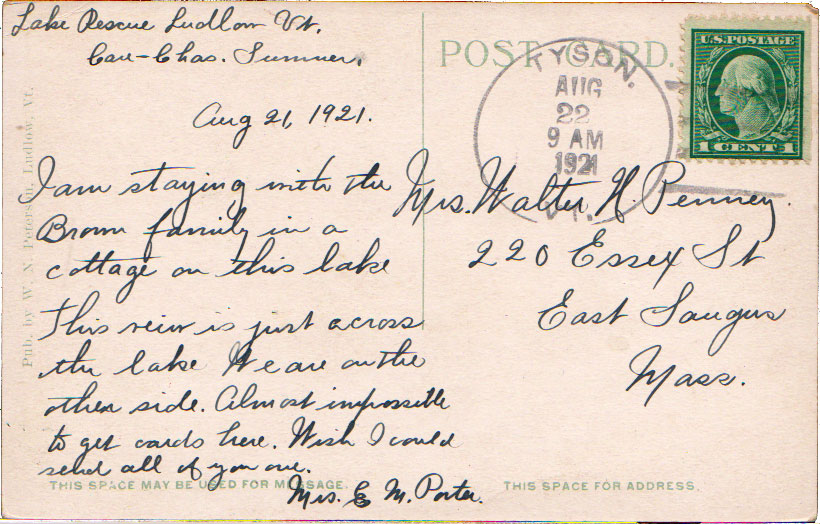 Lake Rescue Ludlow Vt.
Care-Chas. Sumner.
Aug 21, 1921.
I am staying with the
Brown family in a
cottage on this lake
This view is just across
the lake We are on the
other side. Almost impossible
to get cards here. Wish I could
send all of you one.
Mrs. E M. Porter.
THIS SPACE MAY BE USED FOR MESSAGE.
Pub. by W. N. Peterson, Ludlow, Vt.
POST CARD.
TYSON.
AUG
22
9 AM
1921
VT.
U.S. POSTAGE
1 CENT 1
Mrs. Walter H. Penney.
220 Essex St
East Saugus
Mass.
THIS SPACE FOR ADDRESS.